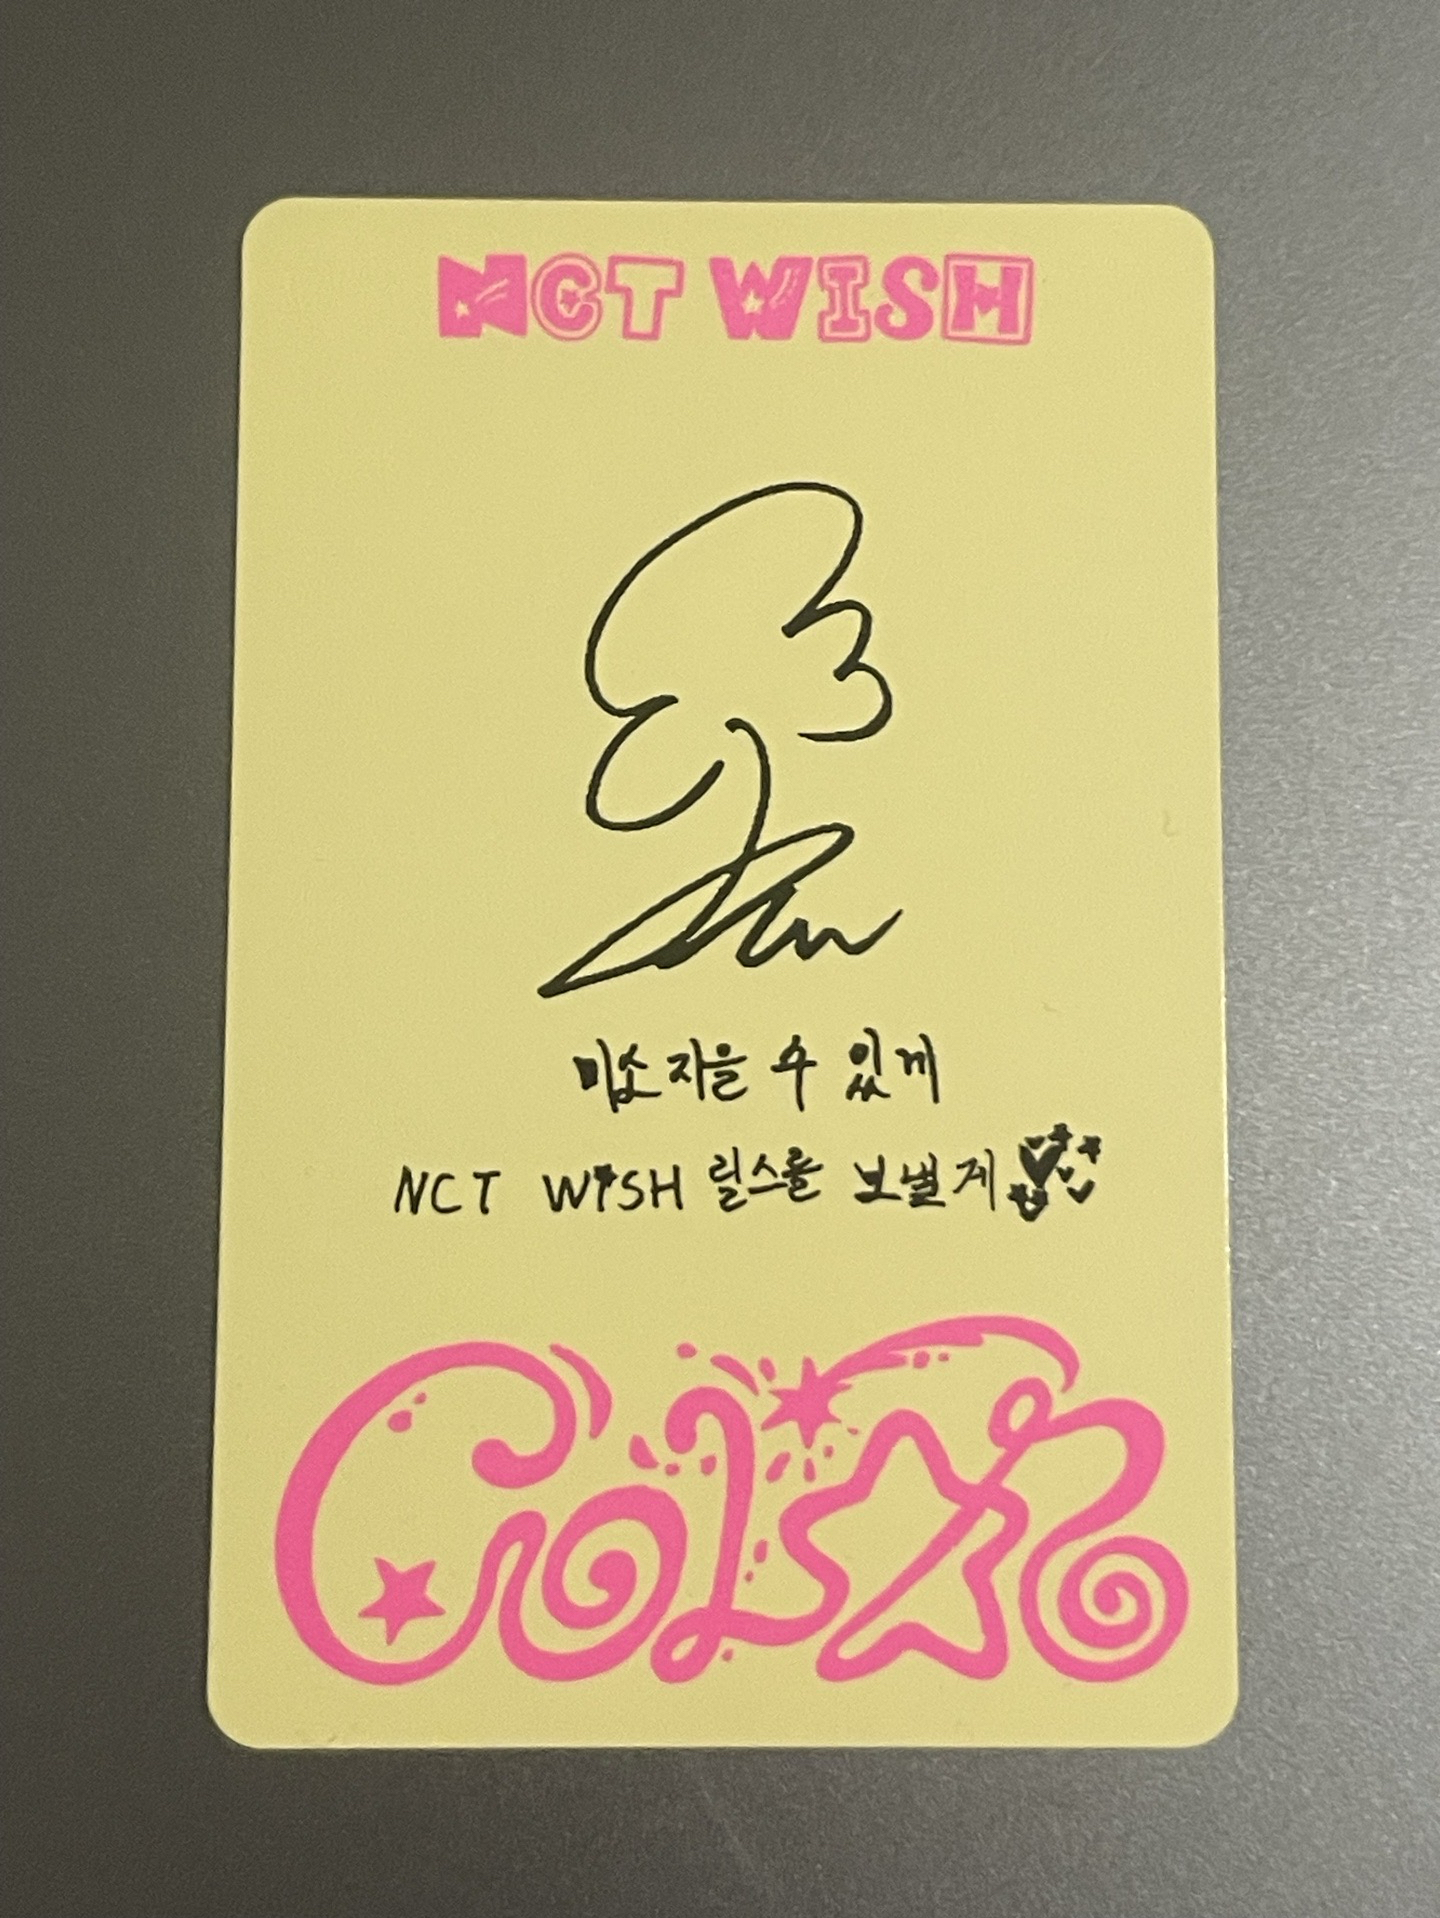 NCT WISH
미소 지을 수 있게
NCT WISH 릴스를 보낼게
COLOR